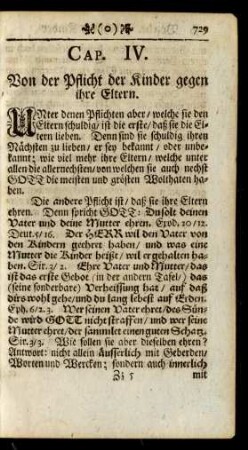 (o) 729
CAP. IV.
Von der Pflicht der Kinder gegen
ihre Eltern.
UNter denen Pflichten aber/ welche sie den
Eltern schuldig/ ist die erste/ daß sie die El-
tern lieben. Denn sind sie schuldig ihren
Nächsten zu lieben/ er sey bekannt/ oder unbe-
kannt; wie viel mehr ihre Eltern/ welche unter
allen die allernechsten/ von welchen sie auch nechst
GOTT die meisten und grösten Wolthaten ha-
ben.
Die andere Pflicht ist/ daß sie ihre Eltern
ehren. Denn spricht GOTT: Du solt deinen
Vater und deine Mutter ehren. Exod. 20/12.
Deut. 5/16. Der HERR wil den Vater von
den Kindern geehret haben/ und was eine
Mutter die Kinder heist/ wil er gehalten ha-
ben. Sir. 3/2. Ehre Vater und Mutter/ das
ist das erste Gebot (in der andern Tafel) das
(eine sonderbare) Verheissung hat/ auf daß
dirs wohl gehe/ und du lang lebest auf Erden.
Eph. 6/2.3. Wer seinen Vater ehret/ des Sün-
de wird GOTT nicht straffen/ und wer seine
Mutter ehret/ der samlet einen guten Schatz.
Sir. 3/3. Wie sollen sie aber dieselben ehren?
Antwort: nicht allein Äusserlich mit Geberden/
Worten und Wercken; sondern auch innerlich
Zz 5 mit